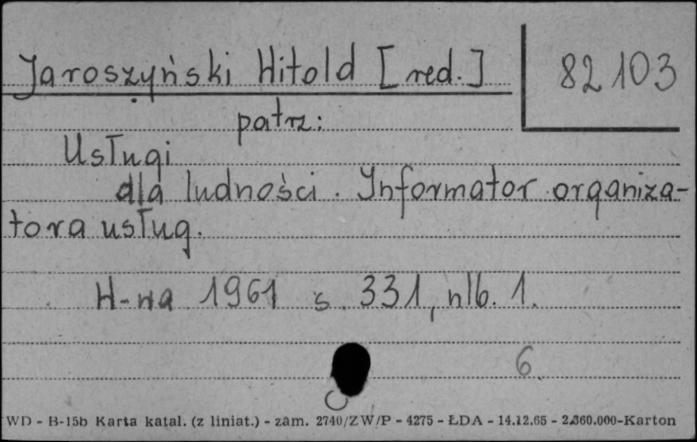 Jaroszyński Witold [red.]
82103
patrz:
Usługi
dla ludności. Informator organiza-
tora usług.
W-wa 1961 s. 331, nlb. 1.
6
WD - B-15b Karta katal. (z liniat.) - zam. 2740/ZW/P - 4275 - ŁDA - 14.12.65 - 2.360.000-Karton